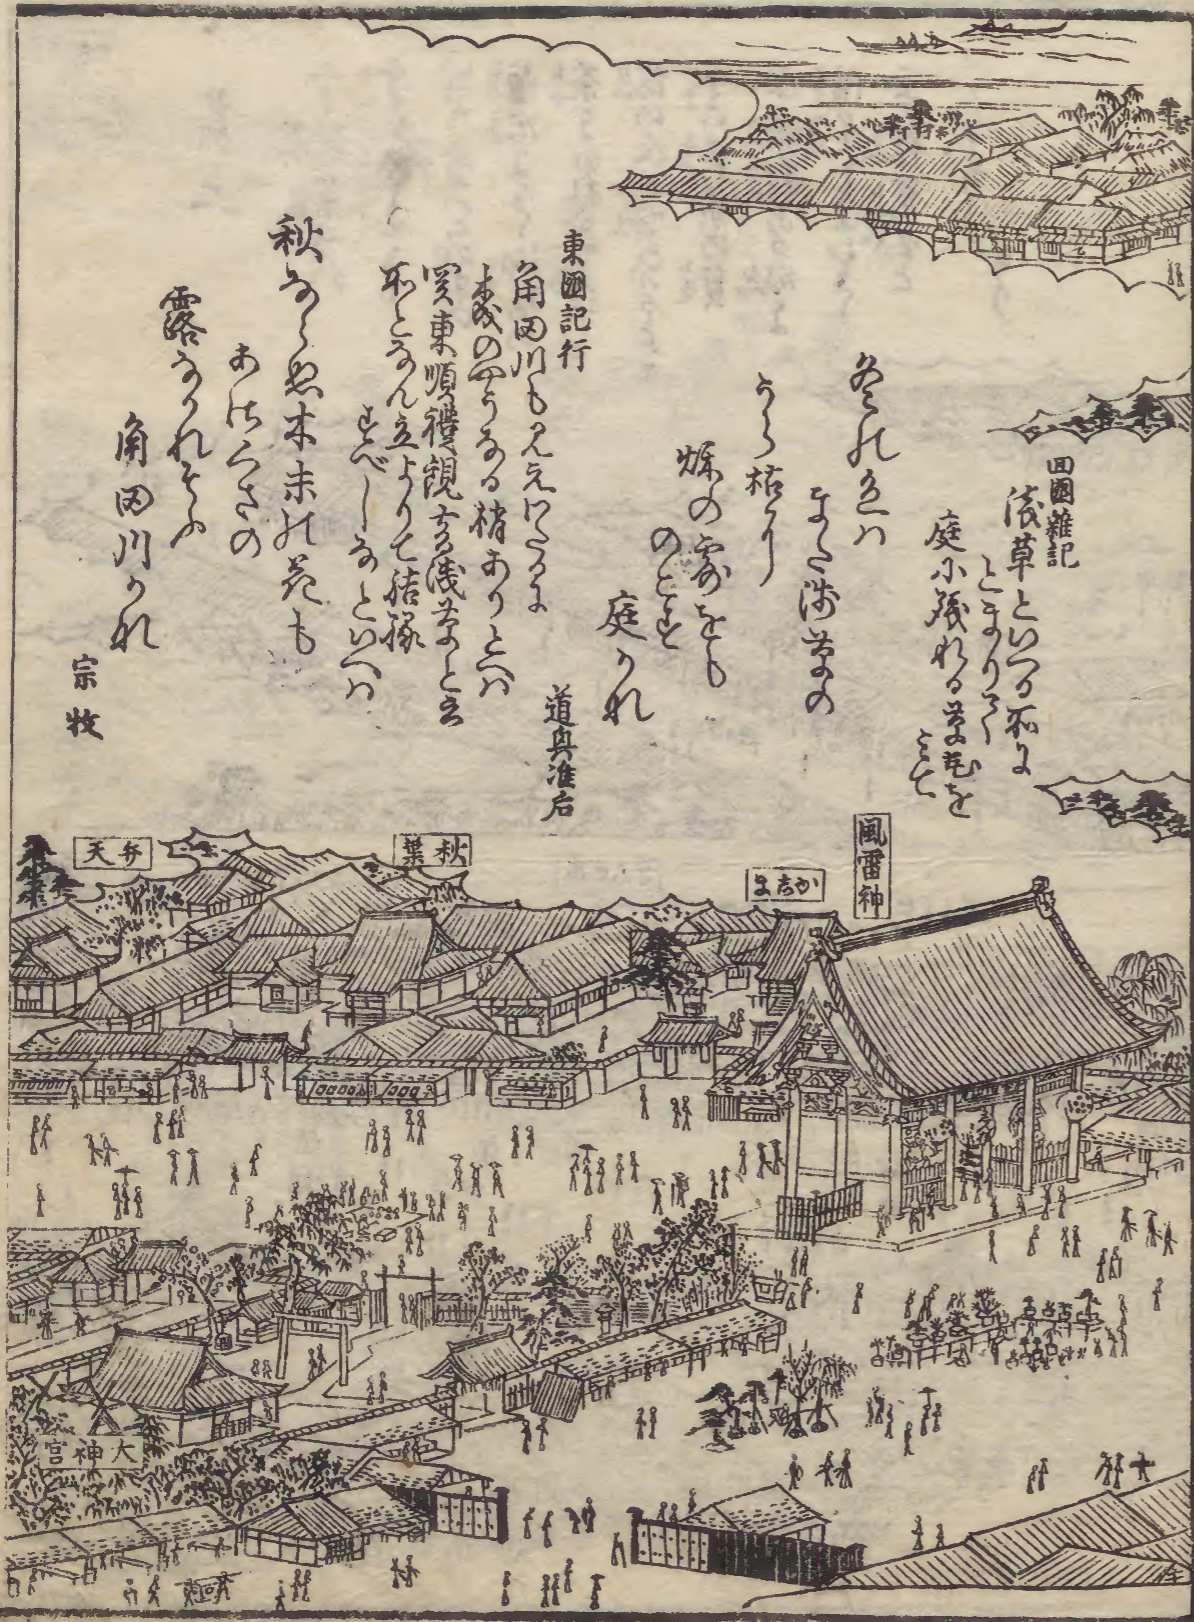 回國雑記
浅草といへる所に
とまりて
庭に殘れる草花を
みて
冬の色ハ
また浅草の
うら枯に
秌の露をも
のこす
庭かれ
道興准后
東國記行
角田川も見えわたるに
森のやうなる梢ありとへハ
関東順禮観音浅草と云
所となん立よりて結縁
すべしなといへハ
秋ならぬ木末の花も
あさくさの
露なかれそふ
角田川かれ
宗牧
風雷神
かしま
秋葉
弁天
大神宮